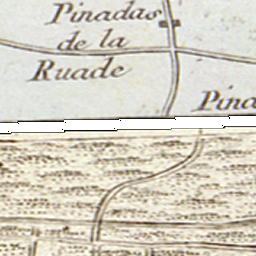 Pinadas
de la
Ruade
Pina